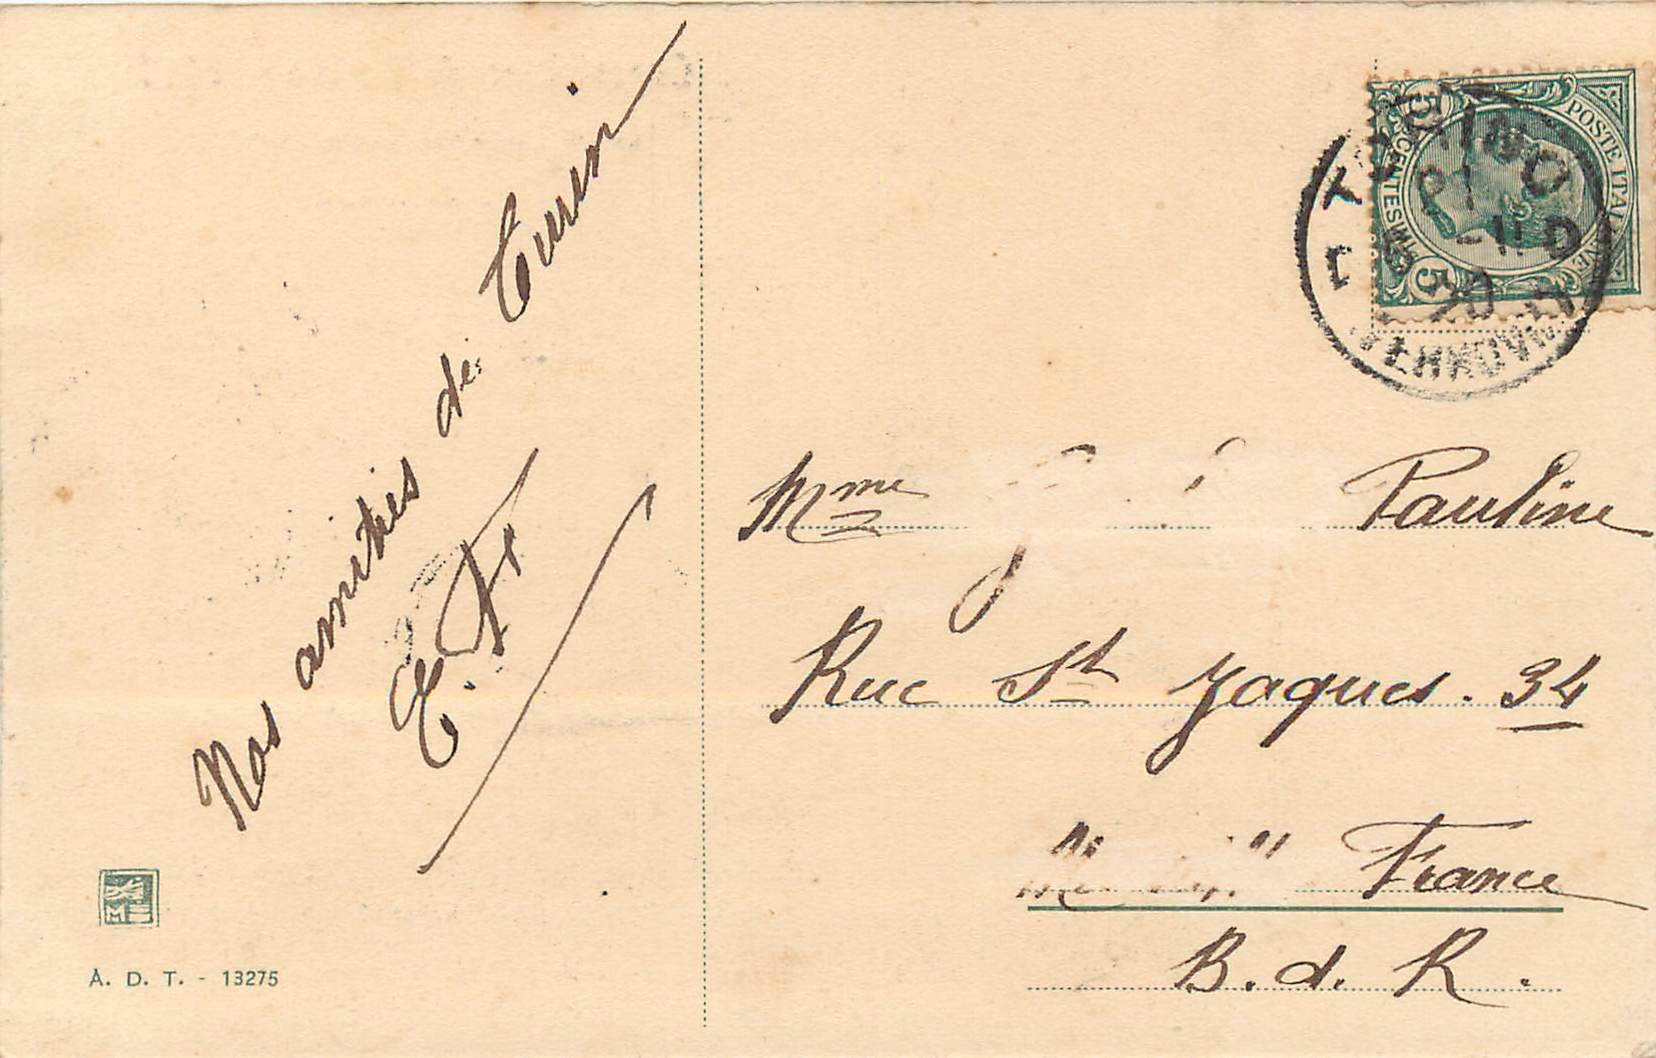 Nos amitiés de Turin
E. F.
M
A. D. T. - 13275
POSTE ITALIANE
CENTESIMI
5
TORINO
Mme Pauline
Rue St Jaques. 34
France
B. d. R.